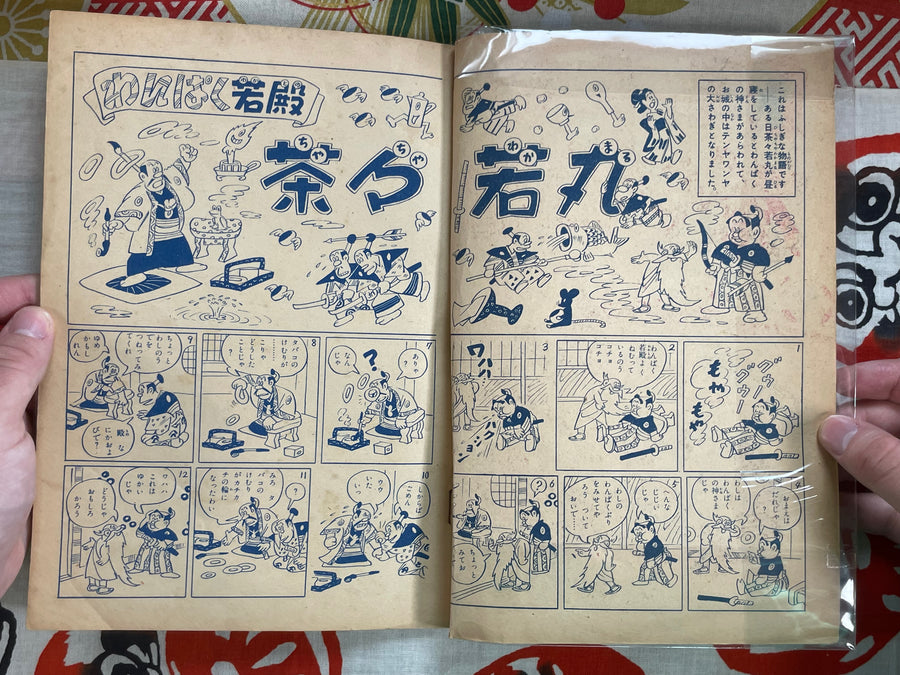 わんぱく若殿
茶々若丸
ちゃちゃわかまる
これはふしぎな物語です
ある日茶々若丸が昼
寝をしているとわんぱく
の神さまがあらわれて、
お城の中はテンヤワンヤ
の大さわぎとなりました。
グウー
グウー
もやもや
2
わんぱく
若殿よく
ねむって
いるのう
コチョ
コチョ
3
ワハハ
ハクション
おまえは
だれじゃ
わしは
わんぱくの
神さま
じゃ
5
へんな
じじい
じゃ
わしの
わんぱくぶり
をみせてや
ろう ついて
おいで……
6
?
ちょっと
みてお
7
ありゃ
?
なん
じゃ
8
タバコの
けむりが
………
こりゃ
どうした
ことじゃ
?
9
ちょっと
わしのう
てを
つねってみ
てくれ
ゆめ
かもし
れん
殿 な
にかおよ
びで?
10
ごめん
ウウ
いた
いっ
11
?
みろ タ
バコの
けむり
がカチカ
チの輪に
なったわ
12
ワハハ
これは
ゆかい
じゃ
どうじゃ
おもしろ
かろう